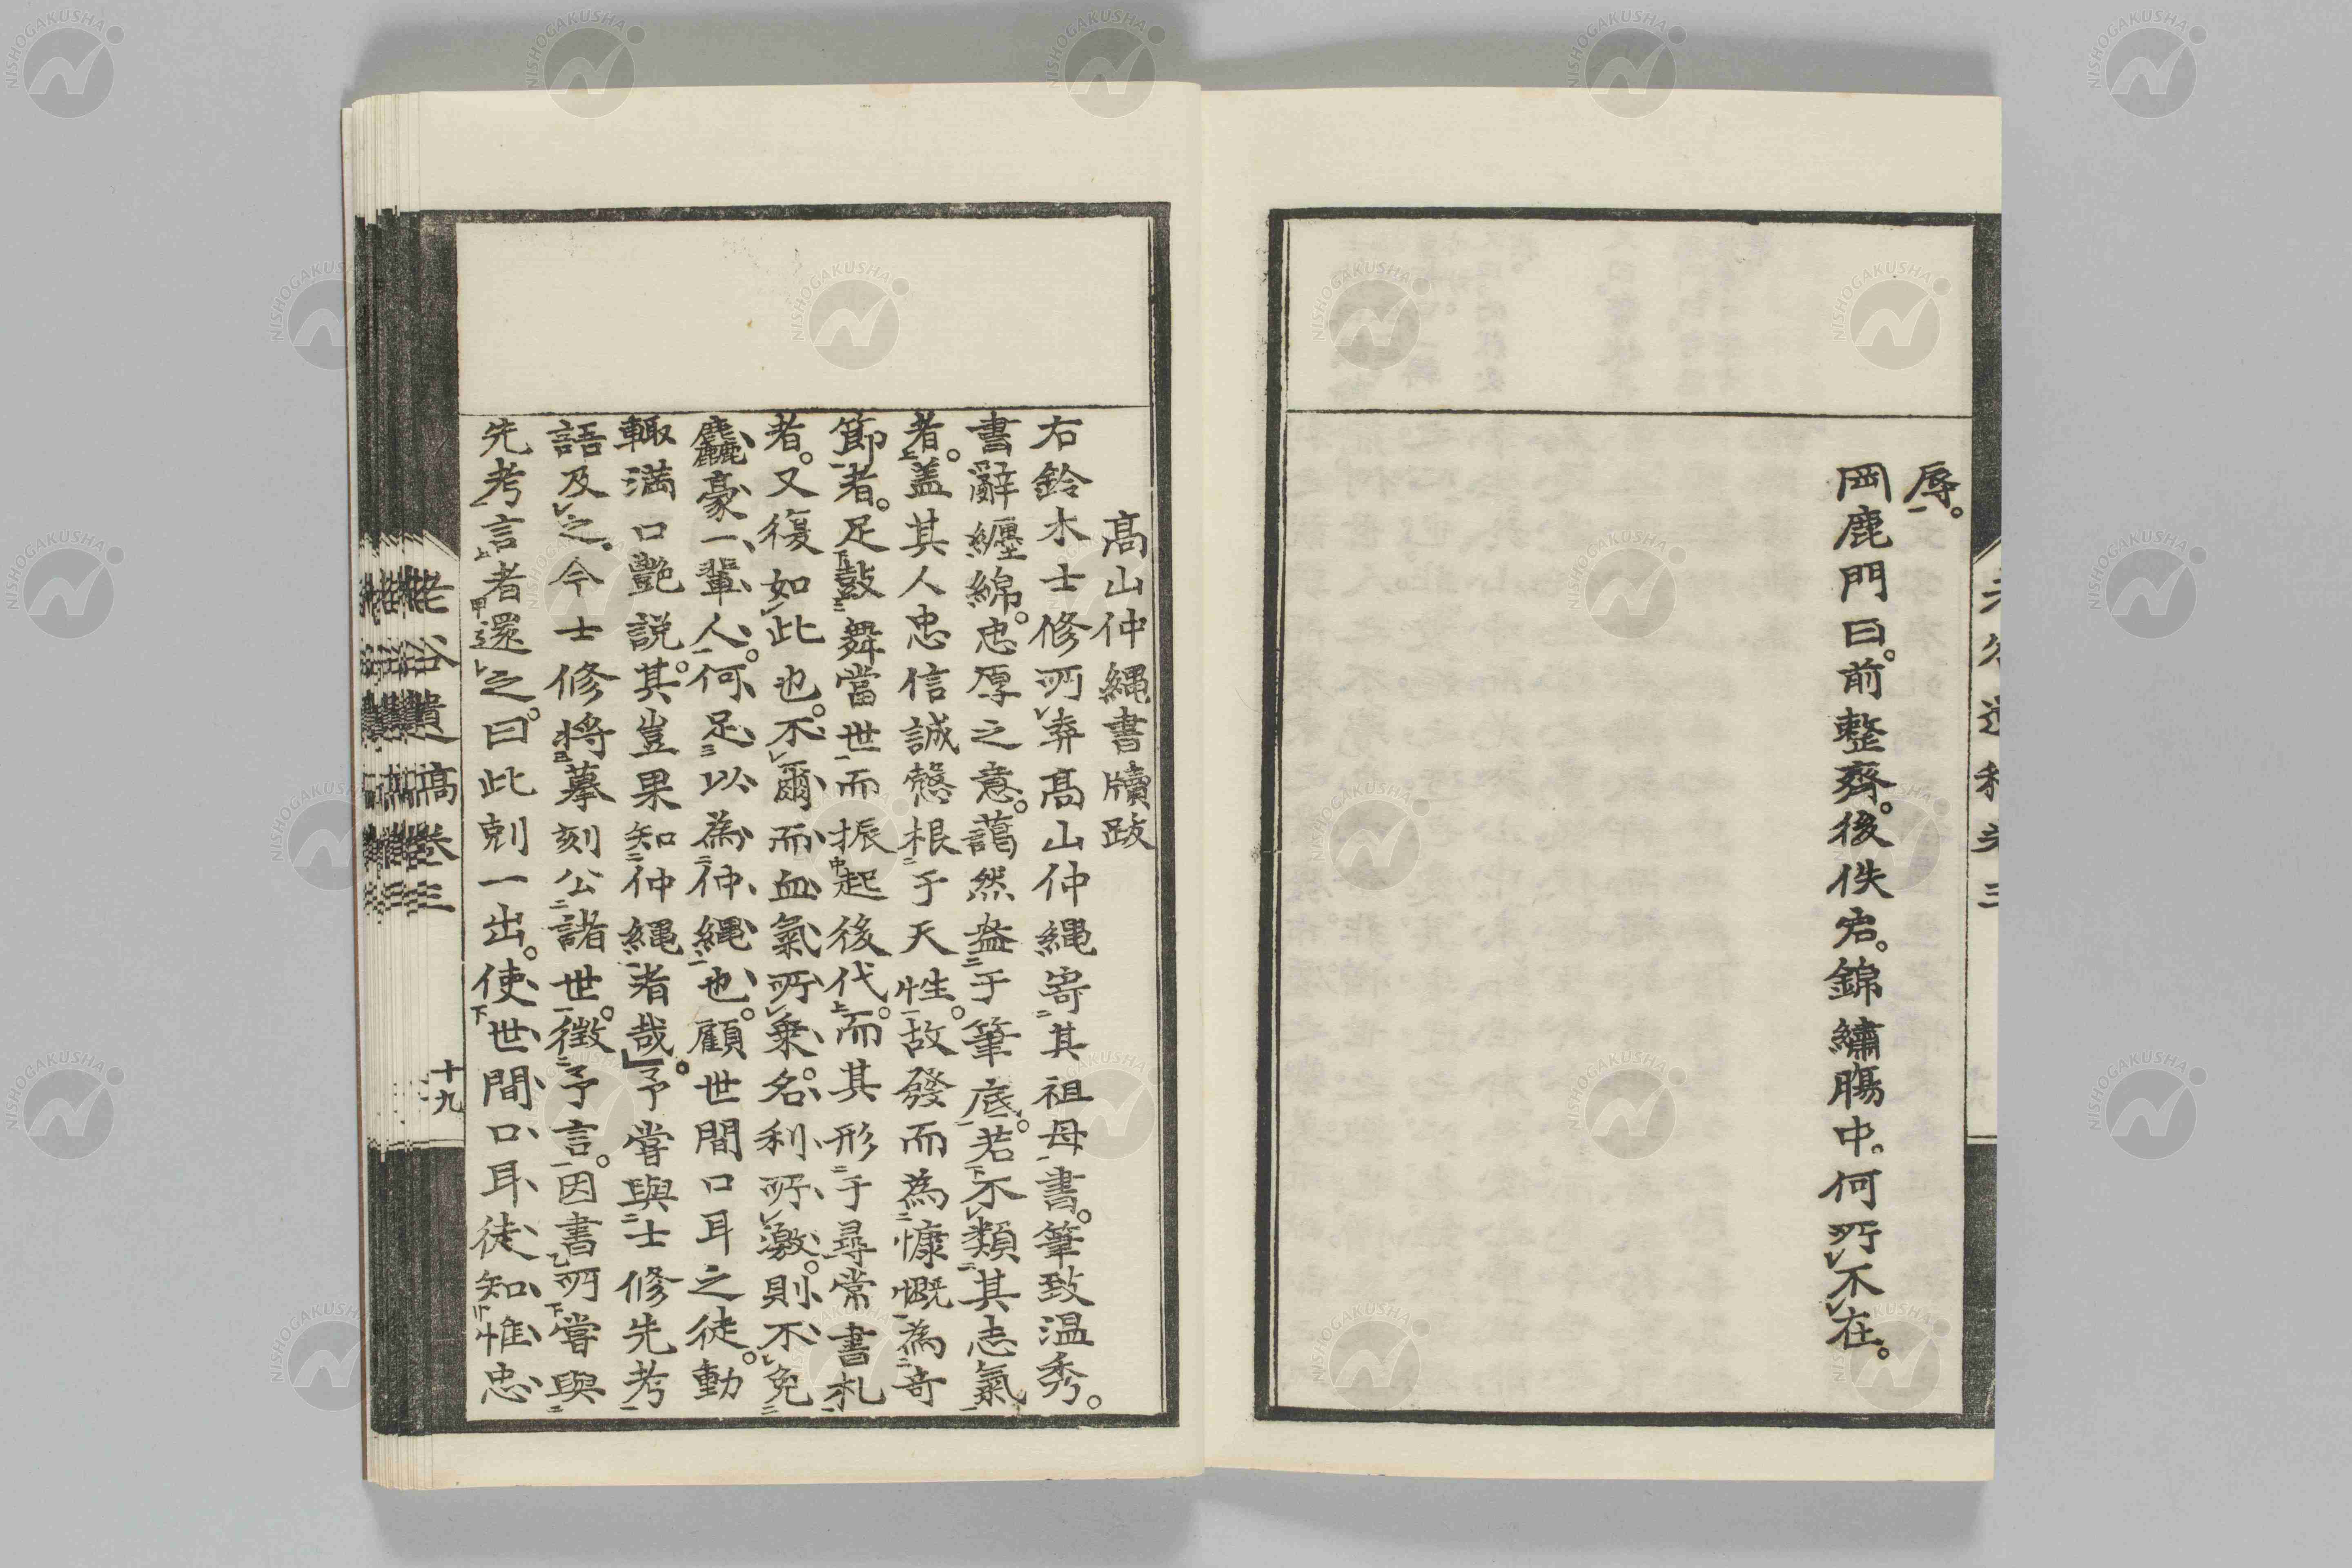 辱。
岡鹿門曰。前整齊。後佚宕。錦繡膓中。何所不在。
高山仲縄書牘跋
右鈴木士修所弆高山仲縄寄其祖母書。筆致温秀。
書辭纏綿。忠厚之意。藹然盎于筆底。若不類其志氣
者。盖其人忠信誠慤根于天性。故發而為慷慨為奇
節者。足鼓舞當世而振起後代。而其形于尋常書札
者。又復如此也。不爾而血氣所乗。名利所激。則不免
麤豪一輩人。何足以為仲縄也。顧世間口耳之徒。動
輙満口艶説。其豈果知仲縄者哉」。予嘗與士修先考
語及之。今士修将摹刻公諸世。徴予言。因書所嘗與
先考言者還之。曰此刻一出。使世間口耳徒知惟忠
老谷遺稿 巻三
十九
NISHOGAKUSHA